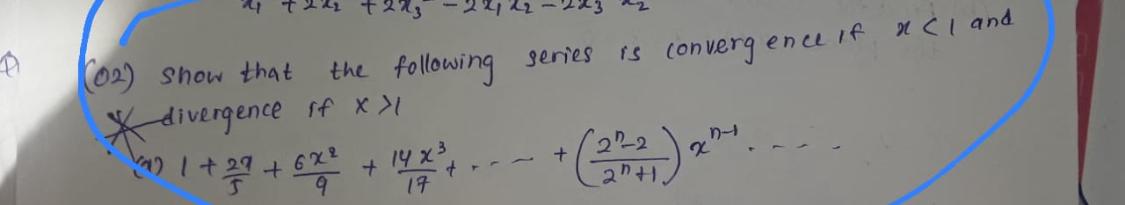 x₁ + 2x₂ + 2x₃ - 2x₁x₂ - 2x₃x₂
(02) Show that the following series is convergence if x < 1 and
divergence if x > 1
(a) 1 + 2x/5 + 6x²/9 + 14x³/17 + ---- + (2ⁿ-2/2ⁿ+1) xⁿ⁻¹ . ----